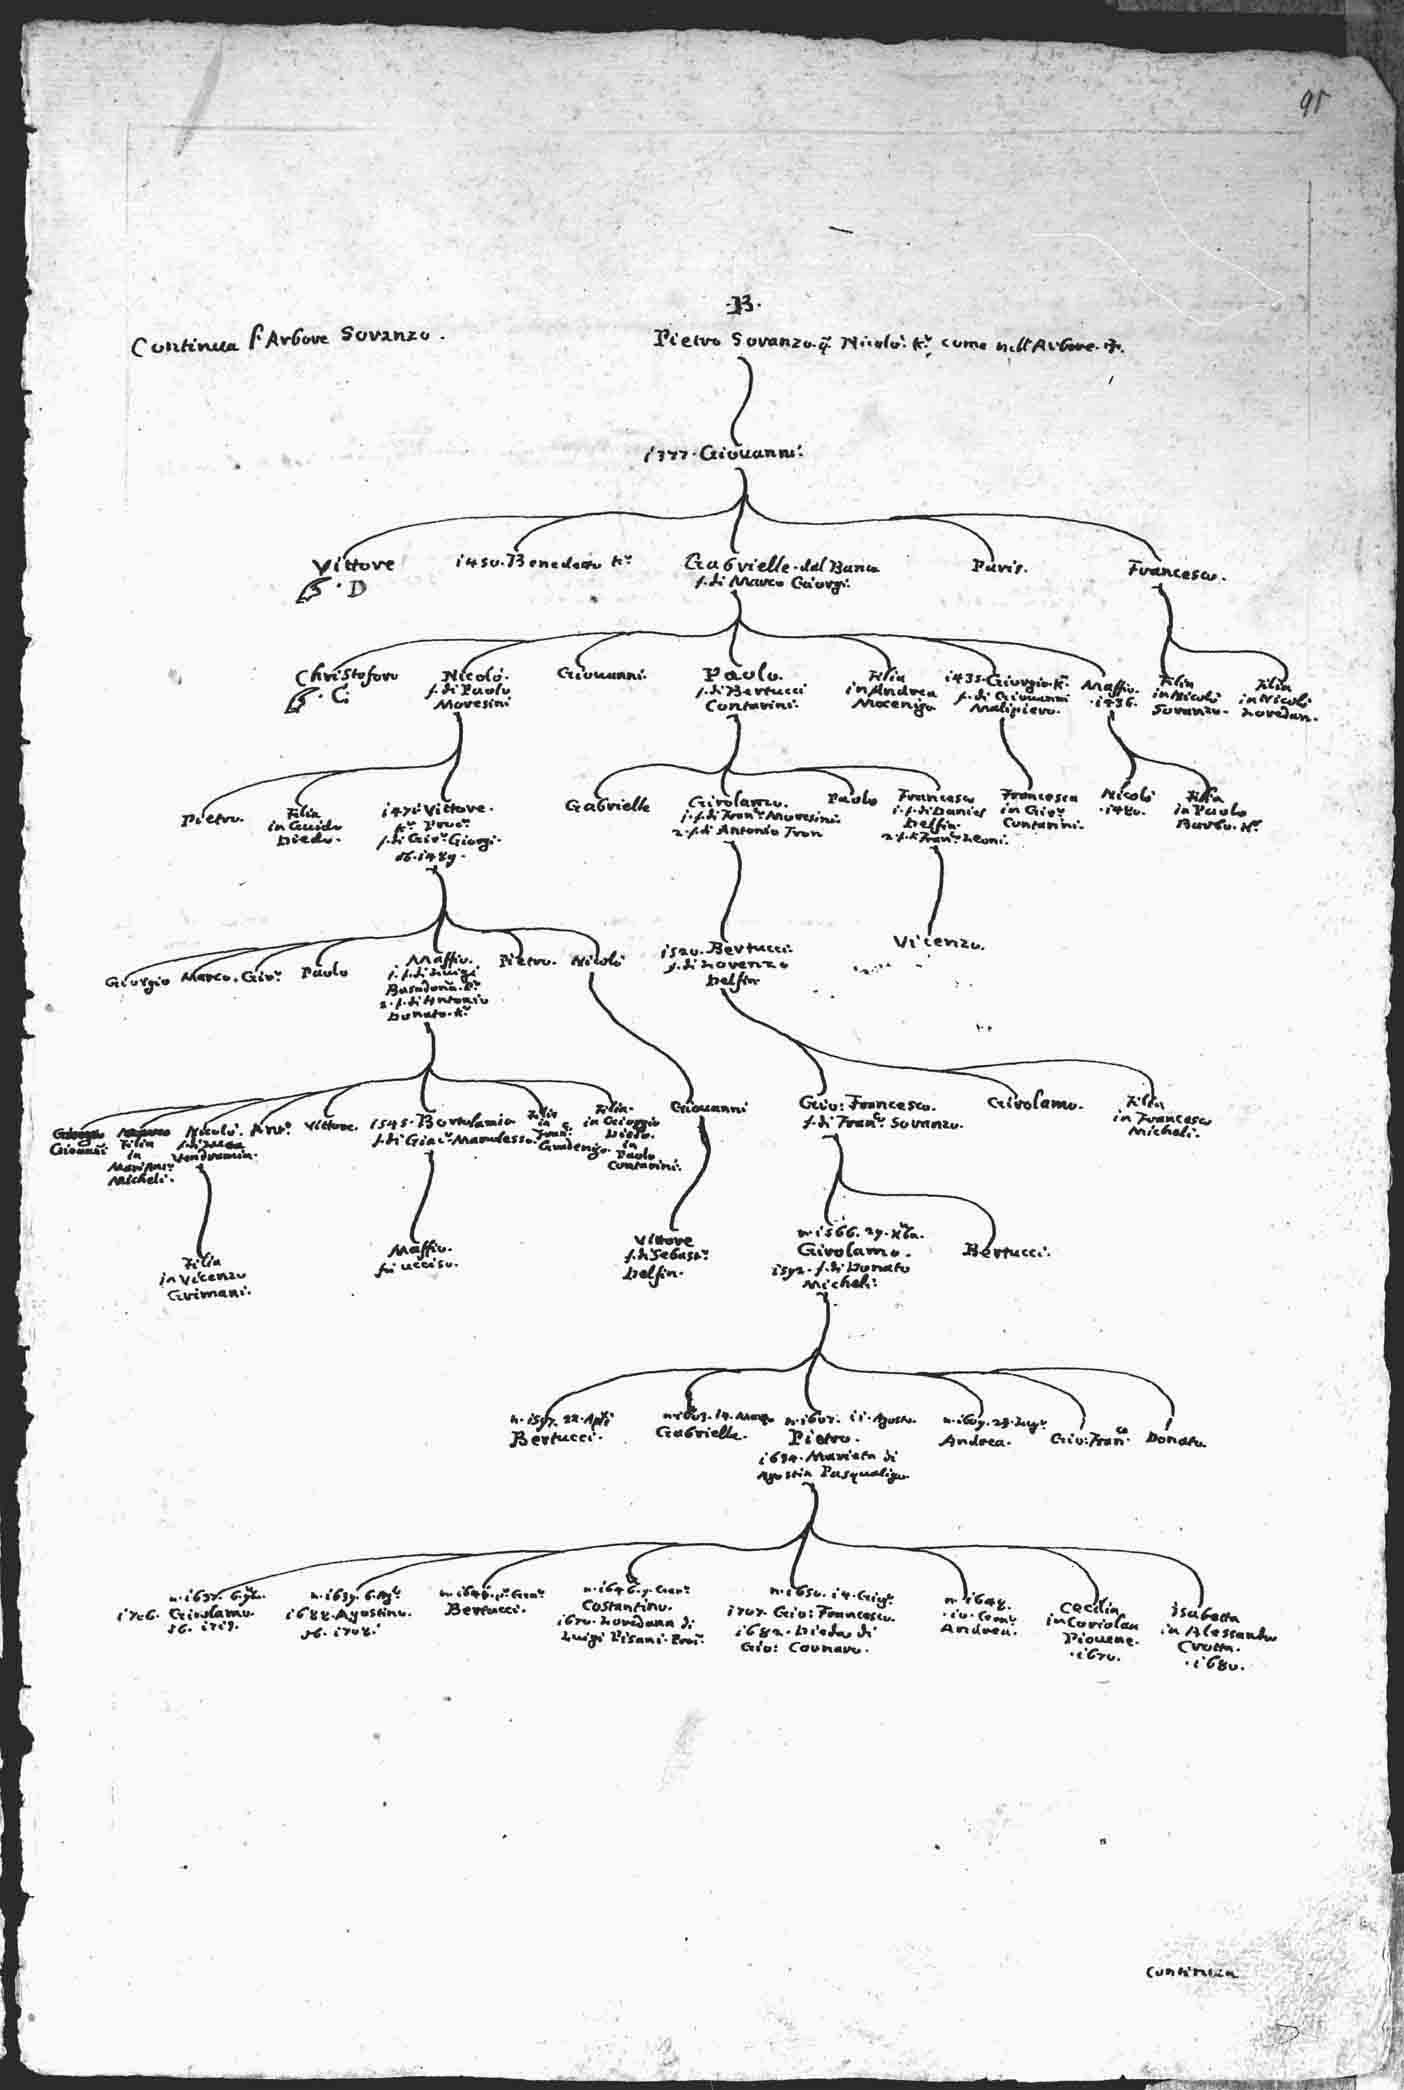 95
·B·
Continua l'Arbore Soranzo.
Pietro Soranzo q̃ Nicolò Kr. come nell'Arbore
1377· Giovanni·
Vittore
· D
1450· Benedetto Kr
Gabrielle dal Banco
f. di Marco Giorgi
Paris.
Francesco.
Christoforo
· C·
Nicolò.
f. di Paolo
Moresini
Giovanni.
Paolo.
f. di Bertucci
Contarini.
Filia
in Andrea
Mocenigo
1435· Giorgio Kr.
f. di Giovanni
Malipiero.
Maffio.
·1436.
Filia
in Nicolò
Soranzo.
Filia
in Nicolò
Loredan.
Pietro.
Filia
in Guido
Diedo.
Vittore.
Kr Procr.
f. di Gior. Giorgi.
ob. 1489.
Gabrielle
Girolamo.
1. f. di Franc. Moresini
2. f. di Antonio Tron
Paolo
Francesco
1. f. di Daniel
Delfin.
2. f. Franc. Leoni.
Francesca
in Gior.
Contarini.
Nicolò
·1480.
Filia
in Paolo
Barbo. Kr
Giorgio
Marco.
Gior.
Paolo
Maffio.
1. f. di Luigi
Basadona
2. f. di Antonio
Donato. Kr
Pietro.
Nicolò
1520. Bertucci
f. di Lorenzo
Delfin
Vicenzo.
Giovanni
Filia
in
Marc'Ant.
Micheli.
Nicolò.
f. di Luca
Vendramin.
Vittore.
1545· Bortolamio
f. di Giac. Marulesso.
Filia
in
Franc.
Gradenigo.
Filia.
in Giorgio
Diedo.
in
Paolo
Contarini.
Giovanni
Gio: Francesco.
f. di Franc. Soranzo.
Girolamo.
Filia
in Francesco
Micheli.
Filia
in Vicenzo
Grimani.
Maffio.
fù ucciso.
Vittore
f. di Sebast.
Delfin.
n. 1566. 29. Xbr.
Girolamo.
1592. f. di Donato
Micheli.
Bertucci.
n. 1597. 22. Apl
Bertucci.
n. 1603. 14. Marzo
Gabrielle.
n. 1607. 11. Agosto.
Pietro.
1634. Marieta di
Agostin Pasqualigo
n. 1609. 29. Lug.
Andrea.
Gio: Franco.
Donato.
n. 1637.
1706. Girolamo.
ob. 1719.
n. 1639.
1688. Agostino.
ob. 1708.
Bertucci.
Costantino.
1670. Loredana di
Luigi Pisani. Procr.
n. 1650. 14. Giug.
1707. Gio: Francesco.
1682. Diedo di
Gio: Cornaro.
n. 1648.
·10. Genr.
Andrea.
Cecilia
in Coriolan
Piovene.
·1670.
Isabetta
in Alessandro
Crotta.
·1680.
continua